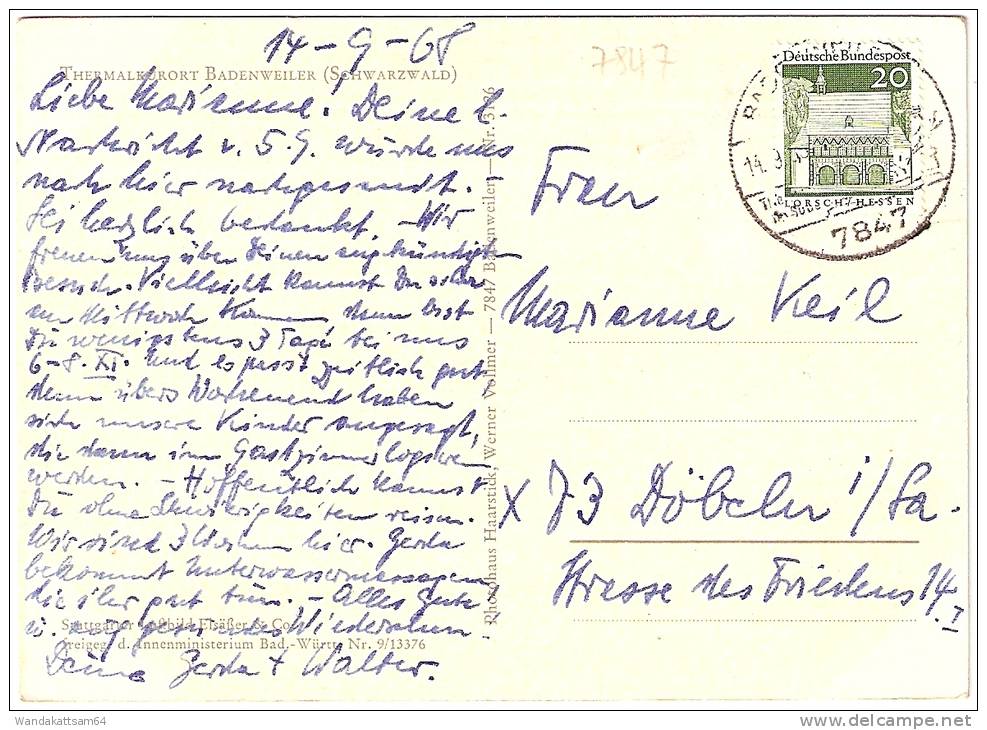 14-9-68
7847
THERMALKURORT BADENWEILER (SCHWARZWALD)
Liebe Marianne! Deine l.
Nachricht v. 5.9. wurde uns
nach hier nachgesandt.
Sei herzlich bedankt. - Wir
freuen uns über Deinen angekündigten
Besuch. Vielleicht kannst Du schon
am Mittwoch kommen, dann bist
Du wenigstens 3 Tage bei uns
6-8. XI. Und es passt zeitlich gut,
denn übers Wochenend haben
sich unsere Kinder angesagt,
die dann im Gastzimmer logieren
werden. - Hoffentlich kannst
Du ohne Schwierigkeiten reisen.
Wir sind 3 Wochen hier. Gerda
bekommt Unterwassermassagen,
die ihr gut tun. - Alles Gute
u. auf gesundes Wiedersehen
Deine Gerda + Walter.
Stuttgarter Luftbild Elsäßer & Co.
Freigeg. d. Innenministerium Bad.-Württ. Nr. 9/13376
Photohaus Haarstick, Werner Vollmer — 7847 Badenweiler
Deutsche Bundespost
20
LORSCH/HESSEN
14. 9.
7847
Frau
Marianne Keil
X 73 Döbeln i/Sa.
Strasse des Friedens 14 I
Wandakattsam64